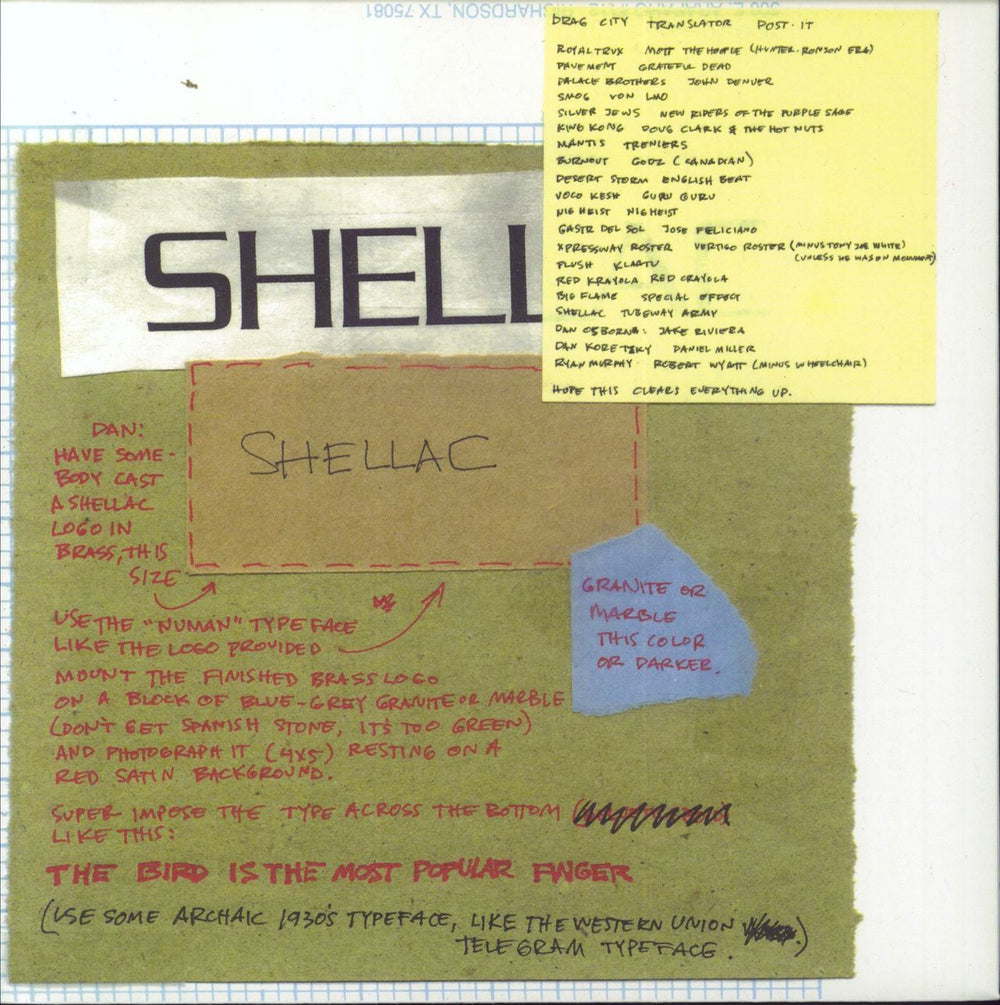 HARDSON, TX 75081
DRAG CITY TRANSLATOR POST-IT
ROYAL TRUX MOTT THE HOOPLE (HUNTER-RONSON ERA)
PAVEMENT GRATEFUL DEAD
PALACE BROTHERS JOHN DENVER
SMOG VON LMO
SILVER JEWS NEW RIDERS OF THE PURPLE SAGE
KING KONG DOUG CLARK & THE HOT NUTS
MANTIS TRENIERS
BURNOUT GODZ (CANADIAN)
DESERT STORM ENGLISH BEAT
VOCO KESH GURU GURU
NIG HEIST NIG HEIST
GASTR DEL SOL JOSE FELICIANO
XPRESSWAY ROSTER VERTIGO ROSTER (MINUS TONY JOE WHITE)
(UNLESS HE WAS ON MONUMENT)
PLUSH KLAATU
RED KRAYOLA RED CRAYOLA
BIG FLAME SPECIAL EFFECT
SHELLAC TUBEWAY ARMY
DAN OSBORNA: JAKE RIVIERA
DAN KORETZKY DANIEL MILLER
RYAN MURPHY: ROBERT WYATT (MINUS WHEELCHAIR)
HOPE THIS CLEARS EVERYTHING UP.
SHELL
SHELLAC
DAN:
HAVE SOME-
BODY CAST
A SHELLAC
LOGO IN
BRASS, THIS
SIZE
USE THE "NUMAN" TYPEFACE
LIKE THE LOGO PROVIDED
GRANITE OR
MARBLE
THIS COLOR
OR DARKER.
MOUNT THE FINISHED BRASS LOGO
ON A BLOCK OF BLUE-GREY GRANITE OR MARBLE
(DON'T GET SPANISH STONE, IT'S TOO GREEN)
AND PHOTOGRAPH IT (4x5) RESTING ON A
RED SATIN BACKGROUND.
SUPER IMPOSE THE TYPE ACROSS THE BOTTOM
LIKE THIS:
THE BIRD IS THE MOST POPULAR FINGER
(USE SOME ARCHAIC 1930'S TYPEFACE, LIKE THE WESTERN UNION
TELEGRAM TYPEFACE.)